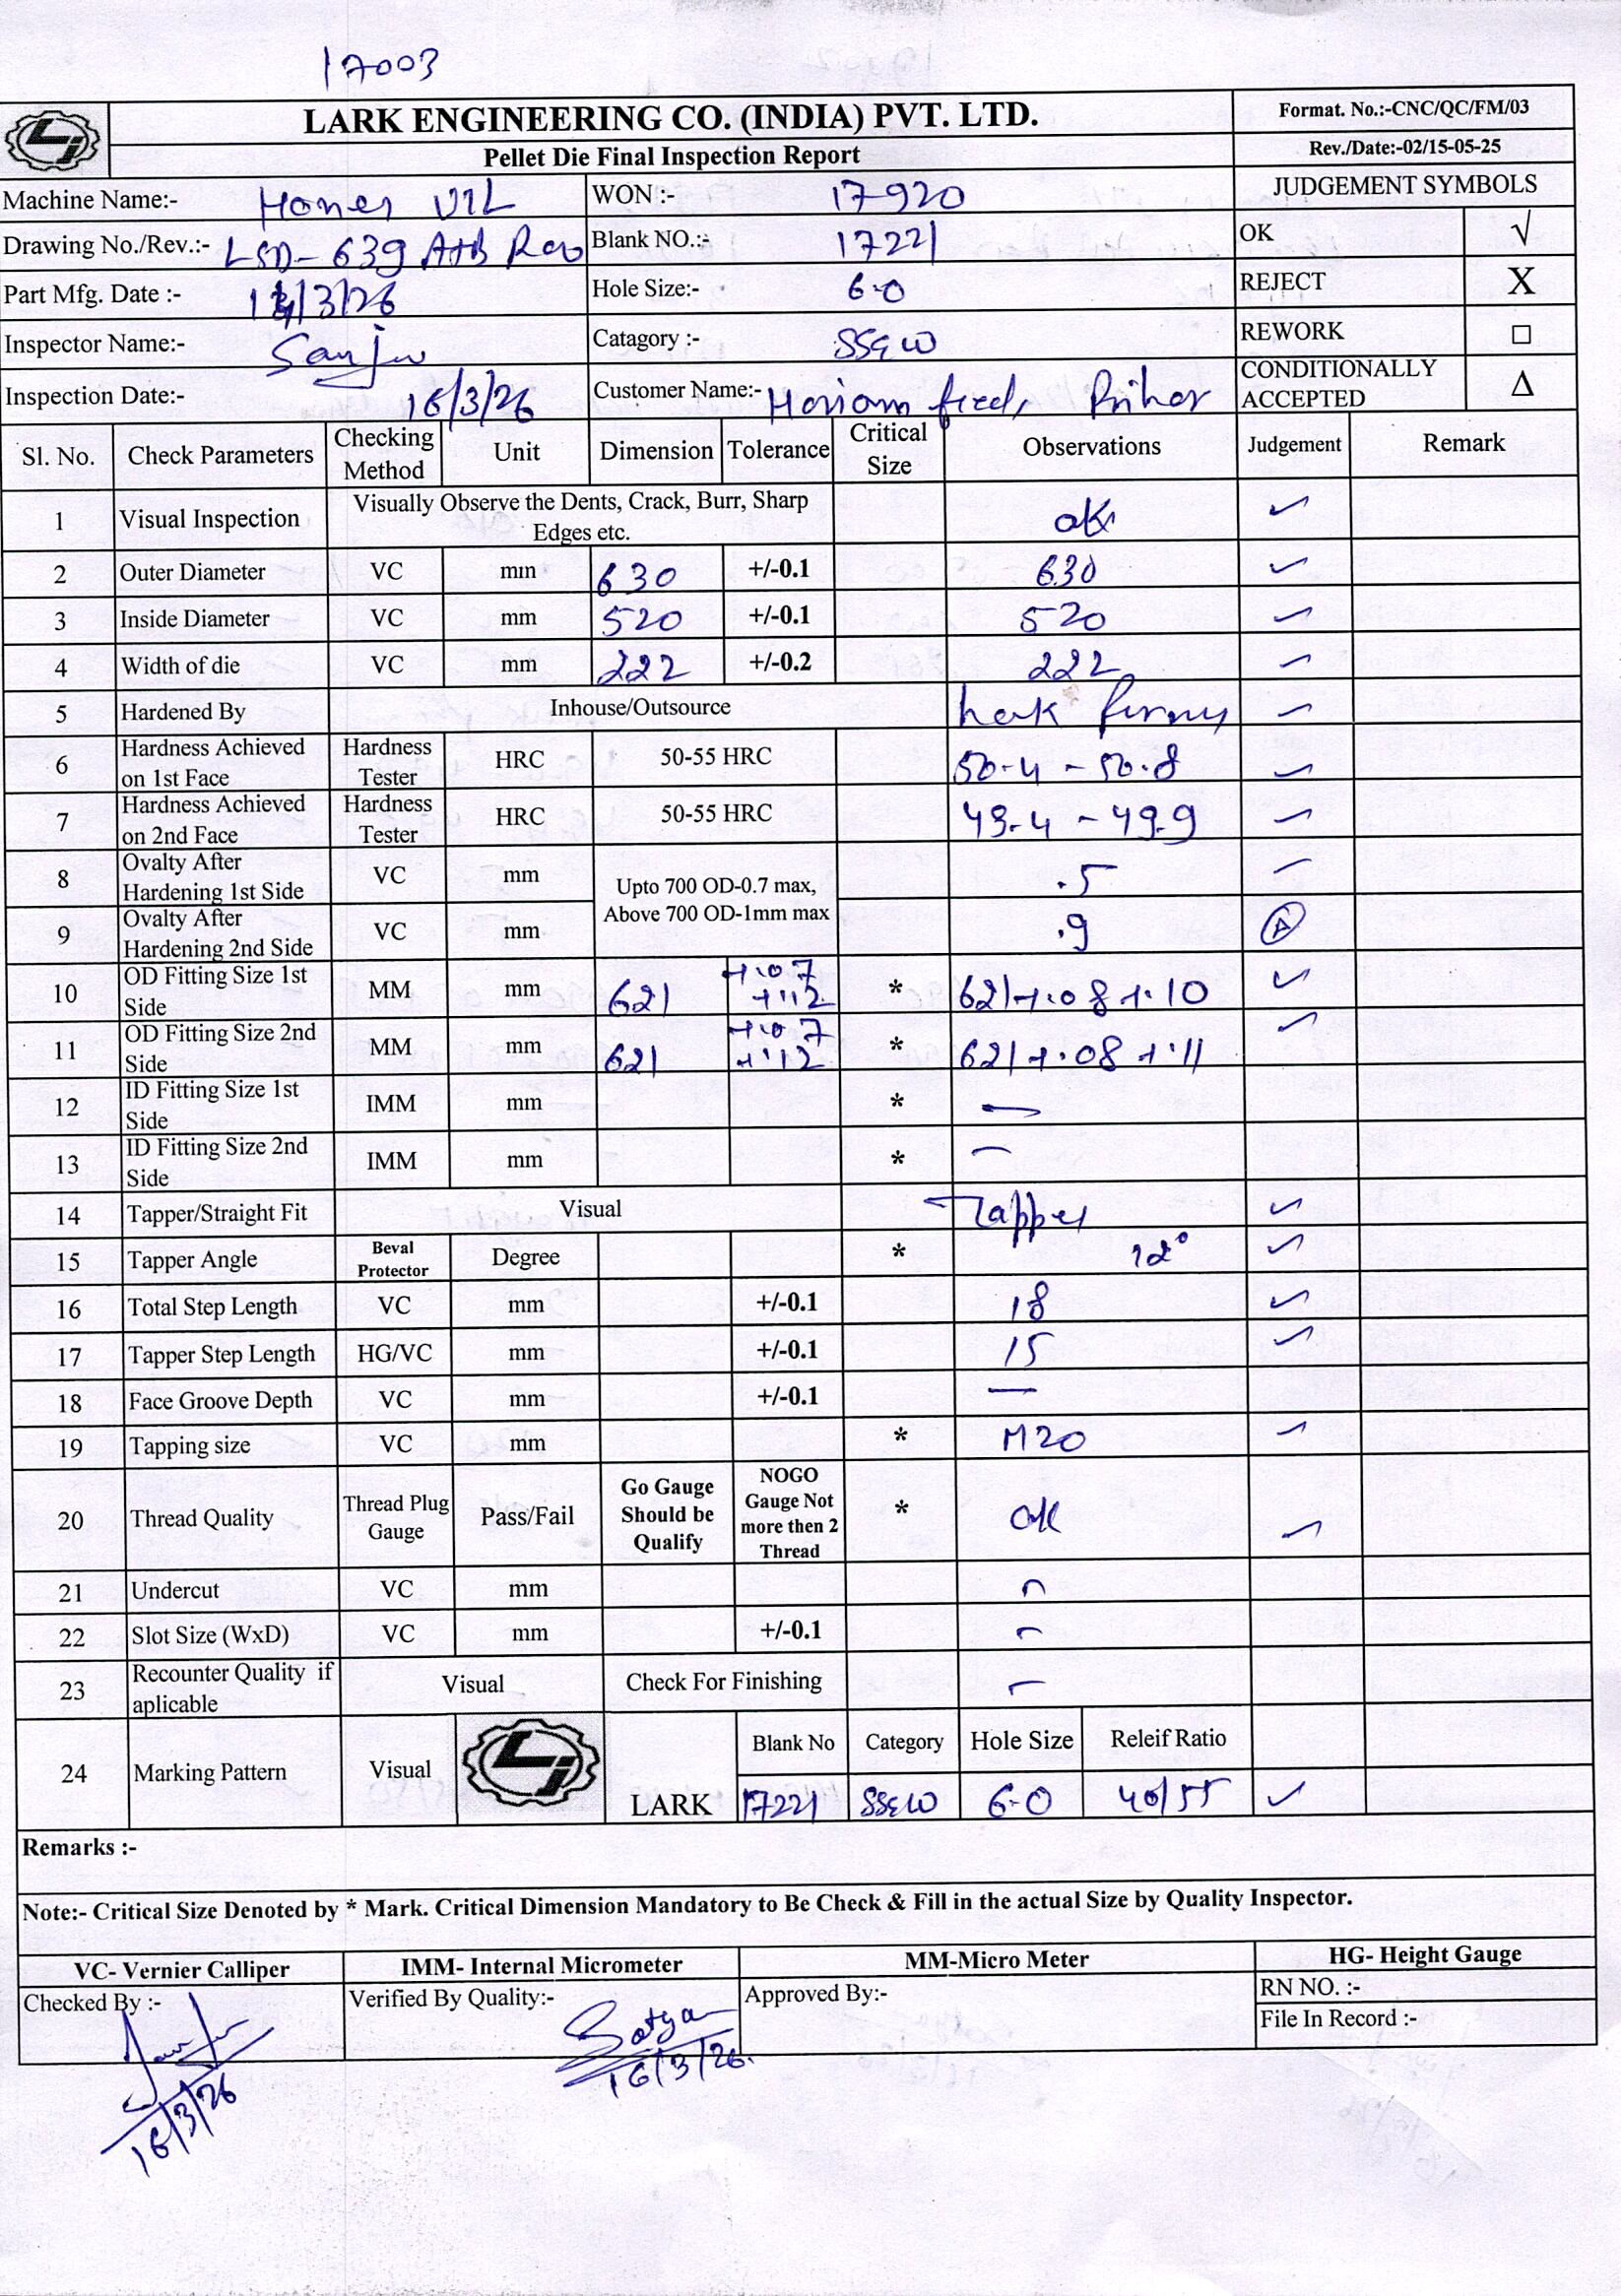 17003
LARK ENGINEERING CO. (INDIA) PVT. LTD.
Format. No.:-CNC/QC/FM/03
Pellet Die Final Inspection Report
Rev./Date:-02/15-05-25
Machine Name:- WON :- 17920 JUDGEMENT SYMBOLS
Drawing No./Rev.:- LSD-639 A+B Rev Blank NO.:- 17221 OK √
Part Mfg. Date :- /3/26 Hole Size:- 6.0 REJECT X
Inspector Name:- Sanju Catagory :- REWORK □
Inspection Date:- 16/3/26 Customer Name:- Hariom feed, CONDITIONALLY ACCEPTED Δ
Sl. No. Check Parameters Checking Method Unit Dimension Tolerance Critical Size Observations Judgement Remark
1 Visual Inspection Visually Observe the Dents, Crack, Burr, Sharp Edges etc. ok ✓
2 Outer Diameter VC mm 630 +/-0.1 630 ✓
3 Inside Diameter VC mm 520 +/-0.1 520 ✓
4 Width of die VC mm 222 +/-0.2 222 ✓
5 Hardened By Inhouse/Outsource ✓
6 Hardness Achieved on 1st Face Hardness Tester HRC 50-55 HRC 50.4 - 50.8 ✓
7 Hardness Achieved on 2nd Face Hardness Tester HRC 50-55 HRC 49.4 - 49.9 ✓
8 Ovalty After Hardening 1st Side VC mm Upto 700 OD-0.7 max, Above 700 OD-1mm max .5 ✓
9 Ovalty After Hardening 2nd Side VC mm .9
10 OD Fitting Size 1st Side MM mm 621 +.07 +.12 * 621 +.08 +.10 ✓
11 OD Fitting Size 2nd Side MM mm 621 +.07 +.12 * 621 +.08 +.11 ✓
12 ID Fitting Size 1st Side IMM mm * —
13 ID Fitting Size 2nd Side IMM mm * —
14 Tapper/Straight Fit Visual Tapper ✓
15 Tapper Angle Beval Protector Degree * 12° ✓
16 Total Step Length VC mm +/-0.1 18 ✓
17 Tapper Step Length HG/VC mm +/-0.1 15 ✓
18 Face Groove Depth VC mm +/-0.1 —
19 Tapping size VC mm * M20 ✓
20 Thread Quality Thread Plug Gauge Pass/Fail Go Gauge Should be Qualify NOGO Gauge Not more then 2 Thread * ok ✓
21 Undercut VC mm —
22 Slot Size (WxD) VC mm +/-0.1 —
23 Recounter Quality if aplicable Visual Check For Finishing —
24 Marking Pattern Visual LARK Blank No Category Hole Size Releif Ratio
17221 6.0 40/55 ✓
Remarks :-
Note:- Critical Size Denoted by * Mark. Critical Dimension Mandatory to Be Check & Fill in the actual Size by Quality Inspector.
VC- Vernier Calliper IMM- Internal Micrometer MM-Micro Meter HG- Height Gauge
Checked By :- Verified By Quality:- Satya Approved By:- RN NO. :-
File In Record :-
16/3/26 16/3/26.